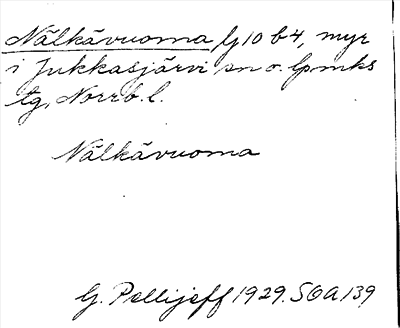 Nälkävuoma bj 10 b 4, myr
i Jukkasjärvi sn o. lpmks
tg, Norrb. l.
Nälkävuoma
G. Pellijeff 1929. SOA 139